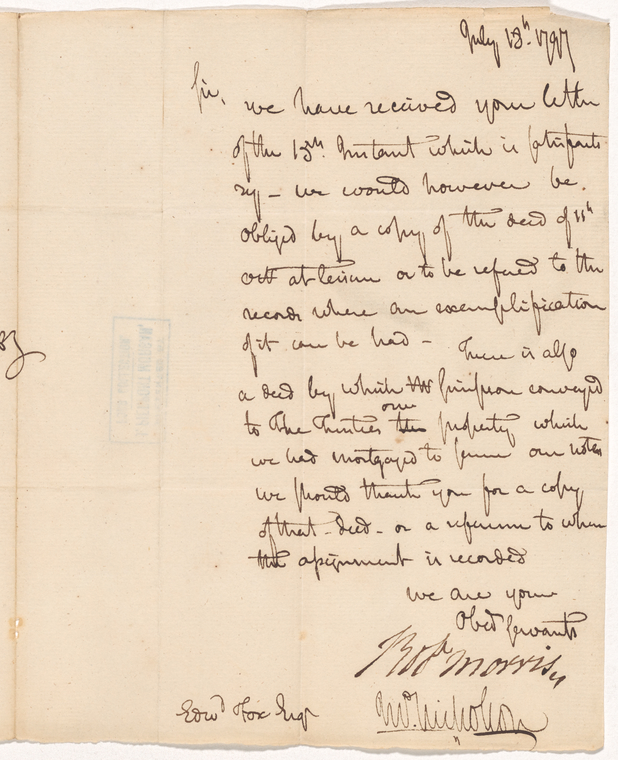 July 18th. 1797
Sir,
we have received your letter
of the 13th. Instant which is satisfacto
ry – we would however be
obliged by a copy of the deed of 11th
octr at leisure or to be refered to the
records where an exemplification
of it can be had – There is also
a deed by which Mr Simpson conveyed
to The Trustees our property which
we had mortgaged to secure our notes
we should thank you for a copy
of that – deed – or a reference to where
the assignment is recorded
we are your
Obed Servants
Robt Morris
Jno. Nicholson
Edwd Fox Esqr